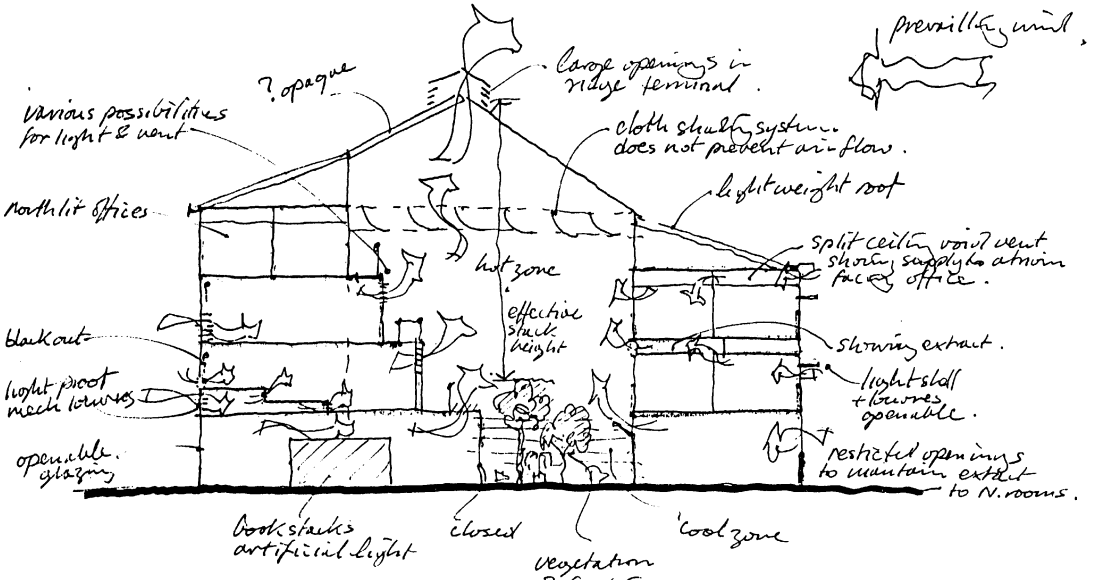 prevailing wind.
large openings in
ridge terminal.
? opaque
various possibilities
for light & vent
cloth shading system.
does not prevent air flow.
light weight roof
north lit offices
split ceiling void vent
showing supply to atrium
facing office.
hot zone
effective
stack
height
blackout
showing extract.
light proof
mech louvres
light shelf
+ louvres
openable.
openable.
glazing
restricted openings
to maintain extract
to N. rooms.
book stacks
artificial light
closed
cool zone
vegetation